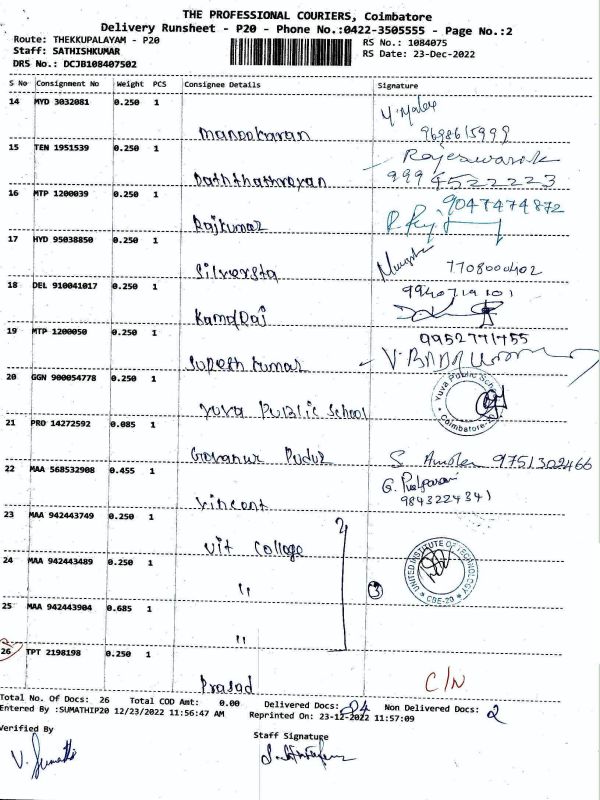 THE PROFESSIONAL COURIERS, Coimbatore
Delivery Runsheet - P20 - Phone No.:0422-3505555 - Page No.:2
Route: THEKKUPALAYAM - P20
RS No.: 1084075
Staff: SATHISHKUMAR
RS Date: 23-Dec-2022
DRS No.: DCJB108407502
S No Consignment No Weight PCS Consignee Details Signature
14 MYD 3032081 0.250 1
Manookaran 9698615999
15 TEN 1951539 0.250 1
Daththathreyan 9994522223
16 MTP 1200039 0.250 1 9047474872
Rajkumar
17 HYD 95038850 0.250 1
Silversta 7708000402
18 DEL 910041017 0.250 1 9940719101
Kamalraj
19 MTP 1200050 0.250 1 9952771755
Supesh kumar
20 GGN 900054778 0.250 1
Yuva Public School
Yuva Public School
Coimbatore
21 PRO 14272592 0.085 1
Govanur Pudur S 9751302466
22 MAA 568532908 0.455 1 G.
Vincent 9843224341
23 MAA 942443749 0.250 1
Vit College
24 MAA 942443489 0.250 1
" 3
UNITED INSTITUTE OF TECHNOLOGY
* CBE-20 *
25 MAA 942443904 0.685 1
"
26 TPT 2198198 0.250 1
Prasad C/N
Total No. Of Docs: 26 Total COD Amt: 0.00 Delivered Docs: 24 Non Delivered Docs: 2
Entered By :SUMATHIP20 12/23/2022 11:56:47 AM Reprinted On: 23-12-2022 11:57:09
Verified By
Staff Signature
V. Sumathi